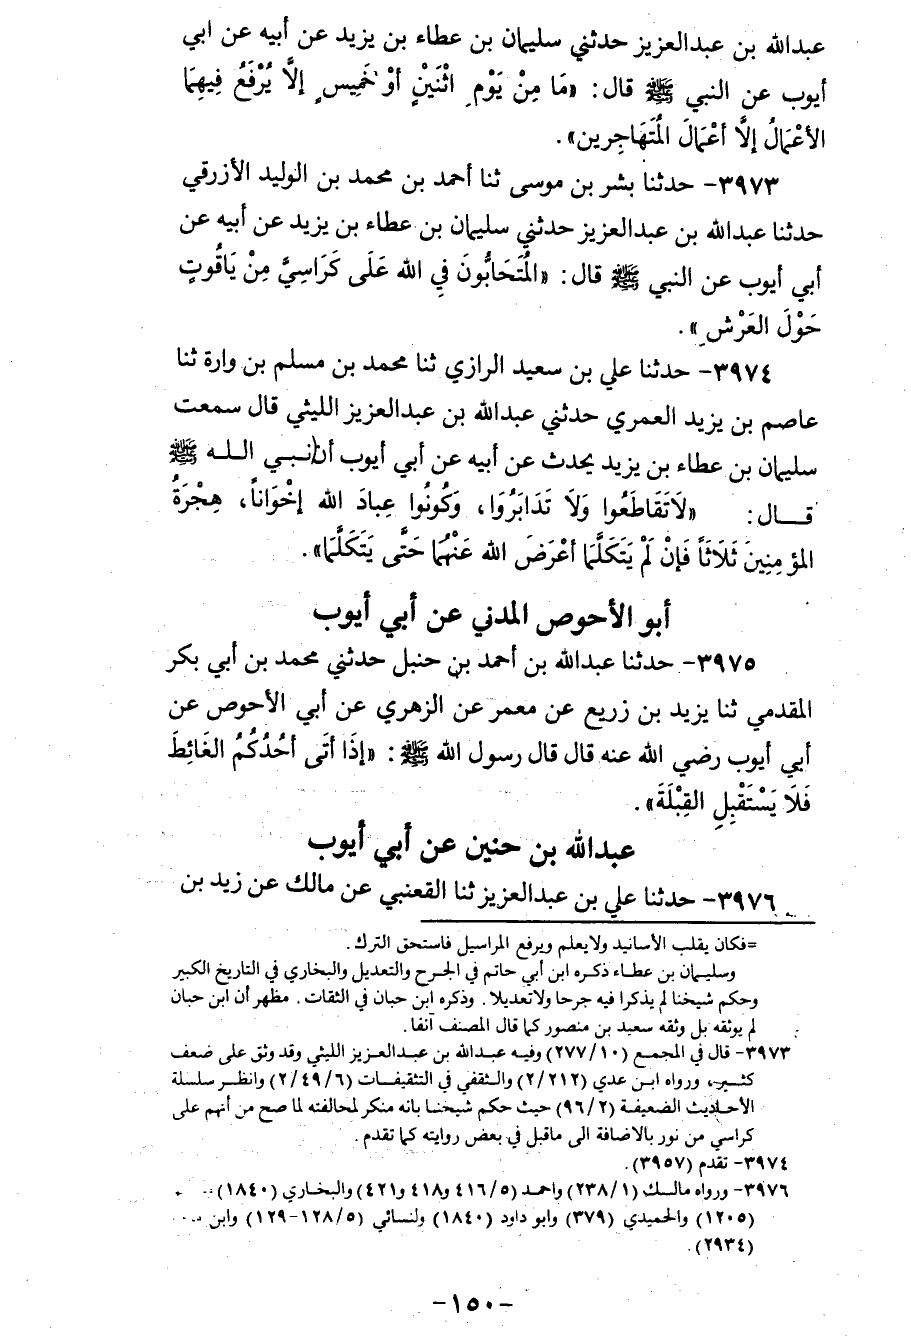 عبدالله بن عبدالعزيز حدثني سليمان بن عطاء بن يزيد عن أبيه عن ابي
أيوب عن النبي ﷺ قال: «مَا مِنْ يَوْمِ اثْنَيْنٍ أوْ خَمِيسٍ إلَّا يُرْفَعُ فِيهِمَا
الأعْمَالُ إلَّا أعْمَالَ المُتَهَاجِرِين».
٣٩٧٣- حدثنا بشر بن موسى ثنا أحمد بن محمد بن الوليد الأزرقي
حدثنا عبدالله بن عبدالعزيز حدثني سليمان بن عطاء بن يزيد عن أبيه عن
أبي أيوب عن النبي ﷺ قال: «المُتَحَابُّونَ فِي الله عَلَى كَرَاسِيَّ مِنْ يَاقُوتٍ
حَوْلَ العَرْشِ».
٣٩٧٤- حدثنا علي بن سعيد الرازي ثنا محمد بن مسلم بن وارة ثنا
عاصم بن يزيد العمري حدثني عبدالله بن عبدالعزيز الليثي قال سمعت
سليمان بن عطاء بن يزيد يحدث عن أبيه عن أبي أيوب أن نبي الله ﷺ
قال: «لَاتَقَاطَعُوا وَلَا تَدَابَرُوَا، وَكُونُوا عِبادَ الله إخْوَاناً، هِجْرَةُ
المؤمِنِينَ ثَلَاثَاً فَإنْ لَمْ يَتَكَلَّمَا أعْرَضَ الله عَنْهُمَا حَتَّى يَتَكَلَّمَا».
أبو الأحوص المدني عن أبي أيوب
٣٩٧٥- حدثنا عبدالله بن أحمد بن حنبل حدثني محمد بن أبي بكر
المقدمي ثنا يزيد بن زريع عن معمر عن الزهري عن أبي الأحوص عن
أبي أيوب رضي الله عنه قال قال رسول الله ﷺ: «إذَا أتَى أحَدُكُمُ الغَائِطَ
فَلَا يَسْتَقْبِلِ القِبْلَةَ».
عبدالله بن حنين عن أبي أيوب
٣٩٧٦- حدثنا علي بن عبدالعزيز ثنا القعنبي عن مالك عن زيد بن
=فكان يقلب الأسانيد ولايعلم ويرفع المراسيل فاستحق الترك.
وسليمان بن عطاء ذكره ابن أبي حاتم في الجرح والتعديل والبخاري في التاريخ الكبير
وحكم شيخنا لم يذكرا فيه جرحا ولاتعديلا. وذكره ابن حبان في الثقات. مظهر أن ابن حبان
لم يوثقه بل وثقه سعيد بن منصور كما قال المصنف آنفا.
٣٩٧٣- قال في المجمع (٢٧٧/١٠) وفيه عبدالله بن عبدالعزيز الليثي وقد وثق على ضعف
كثير، ورواه ابن عدي (٢/٢١٢) والثقفي في الثقيفات (٢/٤٩/٦) وانظر سلسلة
الأحاديث الضعيفة (٩٦/٢) حيث حكم شيخنا بانه منكر لمخالفته لما صح من أنهم على
كراسي من نور بالاضافة الى ماقبل في بعض روايته كما تقدم.
٣٩٧٤- تقدم (٣٩٥٧).
٣٩٧٦- ورواه مالك (٢٣٨/١) واحمد (٤١٦/٥ و٤١٨ و٤٢١) والبخاري (١٨٤٠)
(١٢٠٥) والحميدي (٣٧٩) وابو داود (١٨٤٠) ولنسائي (١٢٨/٥-١٢٩) وابن
(٢٩٣٤).
-١٥٠-